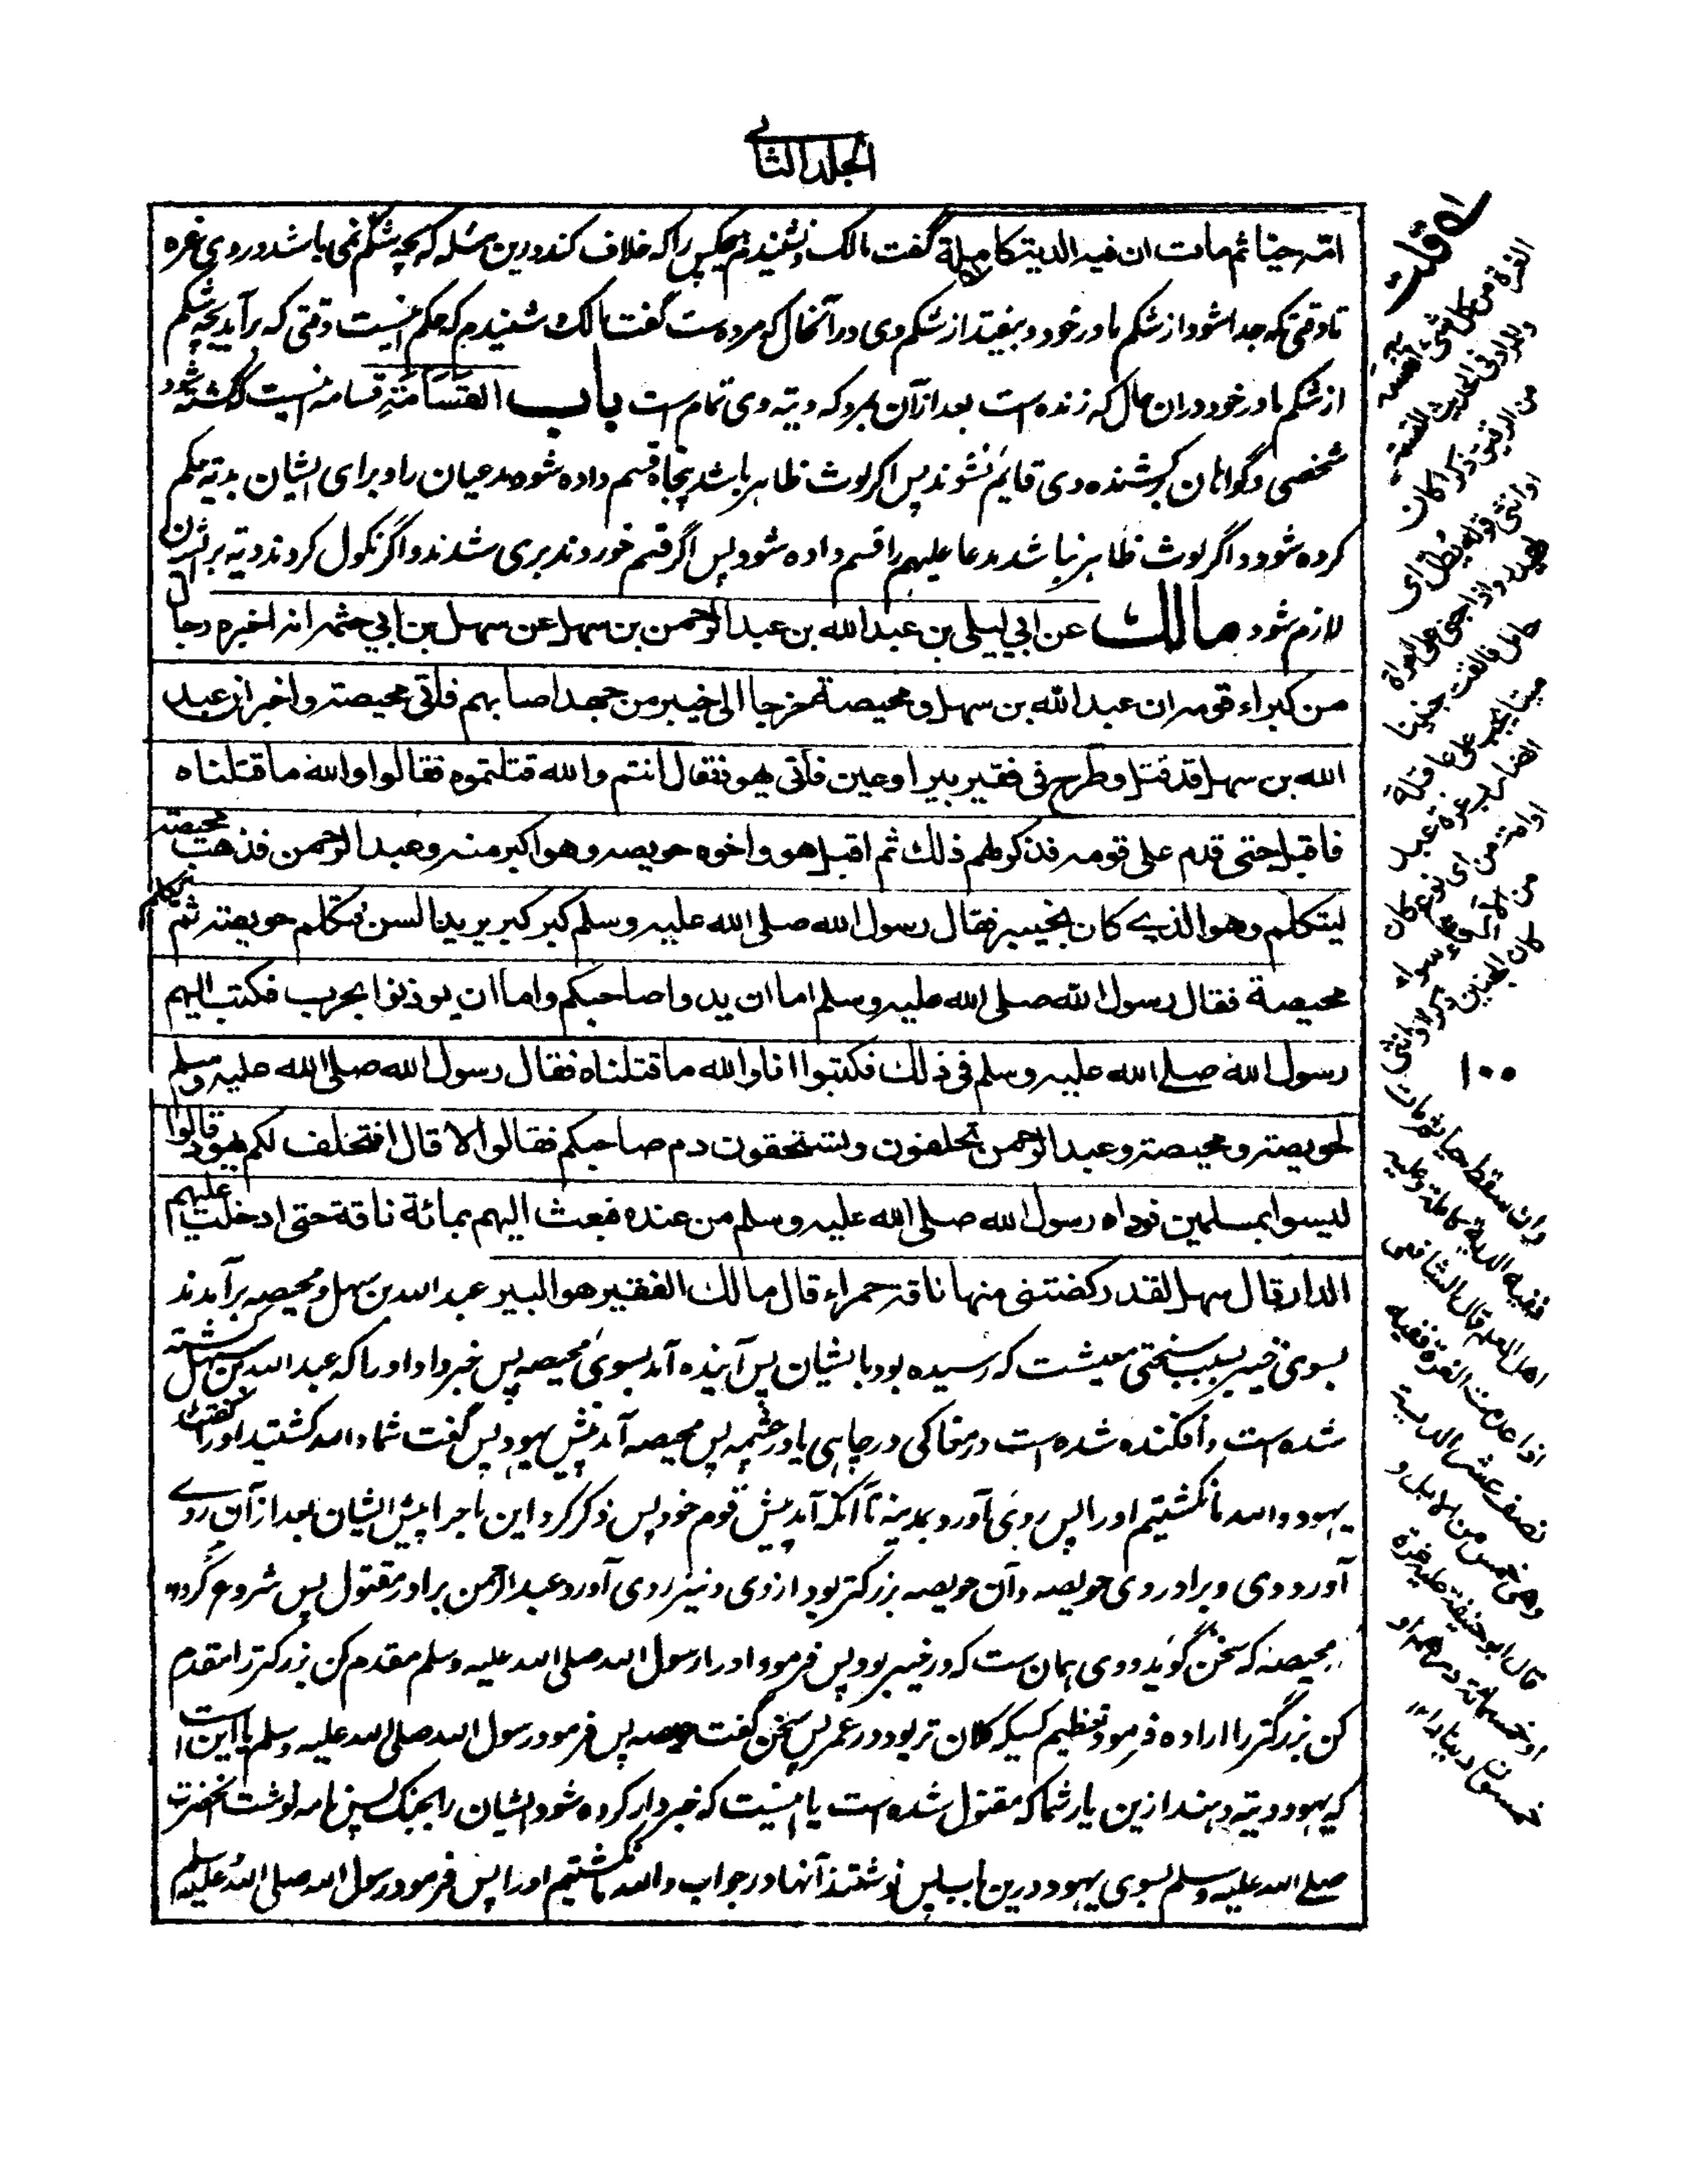 الجلد الثانی
امّه حیّا ثم مات ان فیه الدیة كاملة گفت مالک نشنیدم هیچکس را که خلاف کند درین مسئله که بچه شکم نمی باشد در وی غره
تا وقتیکه جدا شود از شکم مادر خود و بیفتد از شکم وی در آنحال که مرده است گفت مالک شنیدم که حکم اینست وقتی که برآید بچه شکم
از شکم مادر خود دران حال که زنده است بعد ازآن بمرد که دیته وی تمام است باب القسامة قسامه اینست که کشته شود
شخصی و گواهان بر کشنده وی قایم نشوند پس اگر لوث ظاهر باشد پنجاه قسم داده شود مدعیان را و برای ایشان بدیته حکم
کرده شود و اگر لوث ظاهر نباشد مدعا علیهم را قسم داده شود پس اگر قسم خوردند بری شدند و اگر نکول کردند دیته بر ایشان
لازم شود مالك عن ابي ليلى بن عبد الله بن عبد الرحمن بن سهل عن سهل بن ابي حثمه انه اخبره رجال
من كبراء قومه ان عبد الله بن سهل و محيصة خرجا الى خيبر من جهد اصابهم فاتى محيصة و اخبر ان عبد
الله بن سهل قد قتل و طرح فى فقير بير او عين فاتى يهود فقال انتم والله قتلتموه فقالوا والله ما قتلناه
فاقبل حتى قدم على قومه فذكر لهم ذلك ثم اقبل هو و اخوه حويصه و هو اكبر منه و عبد الرحمن فذهب محيصة
ليتكلم و هو الذي كان بخيبر فقال رسول الله صلى الله عليه وسلم كبر كبر يريد السن فتكلم حويصة ثم تكلم
محيصة فقال رسول الله صلى الله عليه وسلم اما ان يدوا صاحبكم و اما ان يوذنوا بحرب فكتب اليهم
رسول الله صلے الله عليه وسلم فى ذلك فكتبوا انا والله ما قتلناه فقال رسول الله صلى الله عليه وسلم
لحويصة و محيصة و عبد الرحمن تحلفون و تستحقون دم صاحبكم فقالوا لا قال افتحلف لكم يهود قالوا
ليسوا بمسلمين فوداه رسول الله صلى الله عليه وسلم من عنده فبعث اليهم بمائة ناقة حتى ادخلت عليهم
الدار قال سهل لقد ركضتنى منها ناقة حمراء قال مالك الفقير هو البير عبد الله بن سهل و محیصه برآمدند
بسوی خیبر بسبب سختی معیشت که رسیده بود بایشان پس آینده آمد بسوی محیصه پس خبر داد او را که عبد الله بن سهل کشته
شده است و افکنده شده است در مغاکی در چاهی یا در چشمه پس محیصه آمد پیش یهود پس گفت شما والله کشتید او را گفتند
یهود والله ما نکشتیم او را پس روی آورد بمدینه تا آنکه آمد پیش قوم خود پس ذکر کرد این ماجرا پیش ایشان بعد ازآن روے
آورد وی و برادر وی حویصه و آن حویصه بزرگتر بود از وی و نیز روی آورد عبد الرحمن برادر مقتول پس شروع کرد
محیصه که سخن گوید و وی همان ست که در خیبر بود پس فرمود او را رسول الله صلی الله علیه وسلم مقدم کن بزرگتر را مقدم
کن بزرگتر را اراده فرمود تعظیم کسیکه کلان تر بود در عمر پس سخن گفت حویصه پس فرمود رسول الله صلی الله علیه وسلم یا این است
که یهود دیته دهند ازین یار شما که مقتول شده است یا اینست که خبردار کرده شود ایشان را بجنگ پس نامه نوشت آنحضرت
صلے الله علیه وسلم بسوی یهود درین باب پس نوشتند آنها در جواب والله ما نکشتیم او را پس فرمود رسول الله صلی الله علیه وسلم
قلت
الغرة من كل شئ انفسه
والمراد فى الحديث النسمة
من الرقيق ذكرا كان
او انثى قوله يطل اى
يهدر و اذا جنى على امراة
حامل فالقت جنينا
ميتا يجب على عاقلة
الضارب غرة عبد
او امة من اى نوع كان
من
سواء
كان الجنين ذكرا او انثى
١٠٠
و ان سقط حيا ثم مات
ففيه الدية كاملة و عليه
اهل العلم قال الشافعى
اذا عدمت الغرة ففيه
نصف عشر الدية
وهى خمس من الابل و
قال ابو حنيفة غرة
او خمسمائة درهم او
خمسون دينارا ١٢